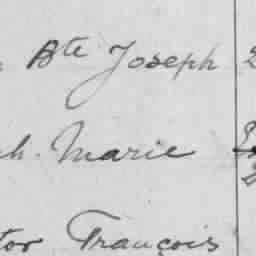 Bte Joseph
h. Marie
tor François